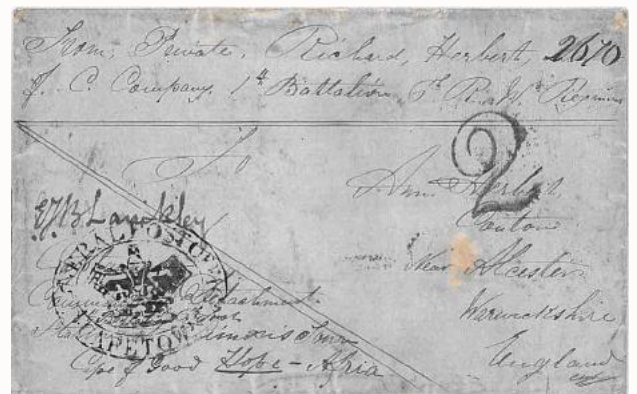 From, Private, Richard, Herbert, 2670
C. Company, 1st Battalion, 6th Regiment
To
Ann Herbert
Near Alcester
Warwickshire
England
GENERAL POST OFFICE
CAPETOWN
2
Detachment
Simons Town
Cape of Good Hope - Afria